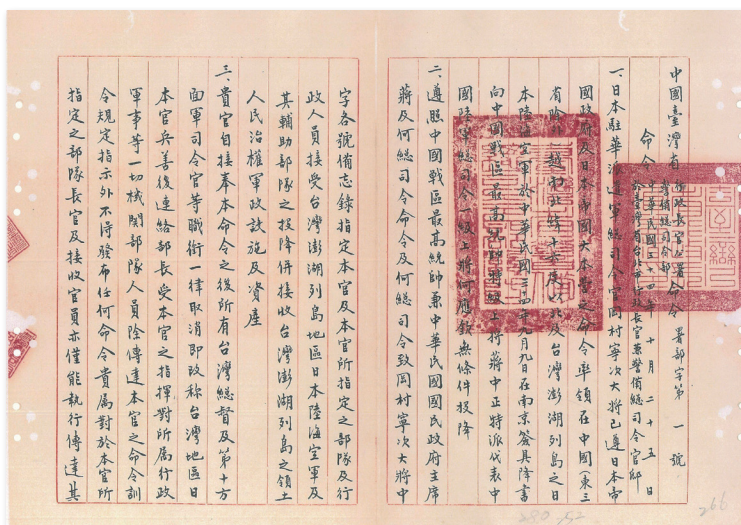 中國臺灣省行政長官公署警備總司令部命令 署部字第一號
命令 中華民國三十四年十月二十五日
於臺灣省台北市行政長官兼警備總司令官邸
一、日本駐華派遣軍總司令官岡村寧次大將已遵日本帝
國政府及日本帝國大本營之命令率領在中國(東三
省除外)越南北緯十六度以北及台灣澎湖列島之日
本陸海空軍於中華民國三十四年九月九日在南京簽具降書
向中國戰區最高統帥特級上將蔣中正特派代表中
國陸軍總司令一級上將何應欽無條件投降
二、遵照中國戰區最高統帥兼中華民國國民政府主席
蔣及何總司令命令及何總司令致岡村寧次大將中
字各號備忘錄指定本官及本官所指定之部隊及行
政人員接受台灣澎湖列島地區日本陸海空軍及
其輔助部隊之投降併接收台灣澎湖列島之領土
人民治權軍政設施及資產
三、貴官自接奉本命令之後所有台灣總督及第十方
面軍司令官等職銜一律取消即改稱台灣地區日
本官兵善後連絡部長受本官之指揮對所屬行政
軍事等一切機關部隊人員除傳達本官之命令訓
令規定指示外不得發布任何命令貴屬對於本官所
指定之部隊長官及接收官員亦僅能執行傳達其
266